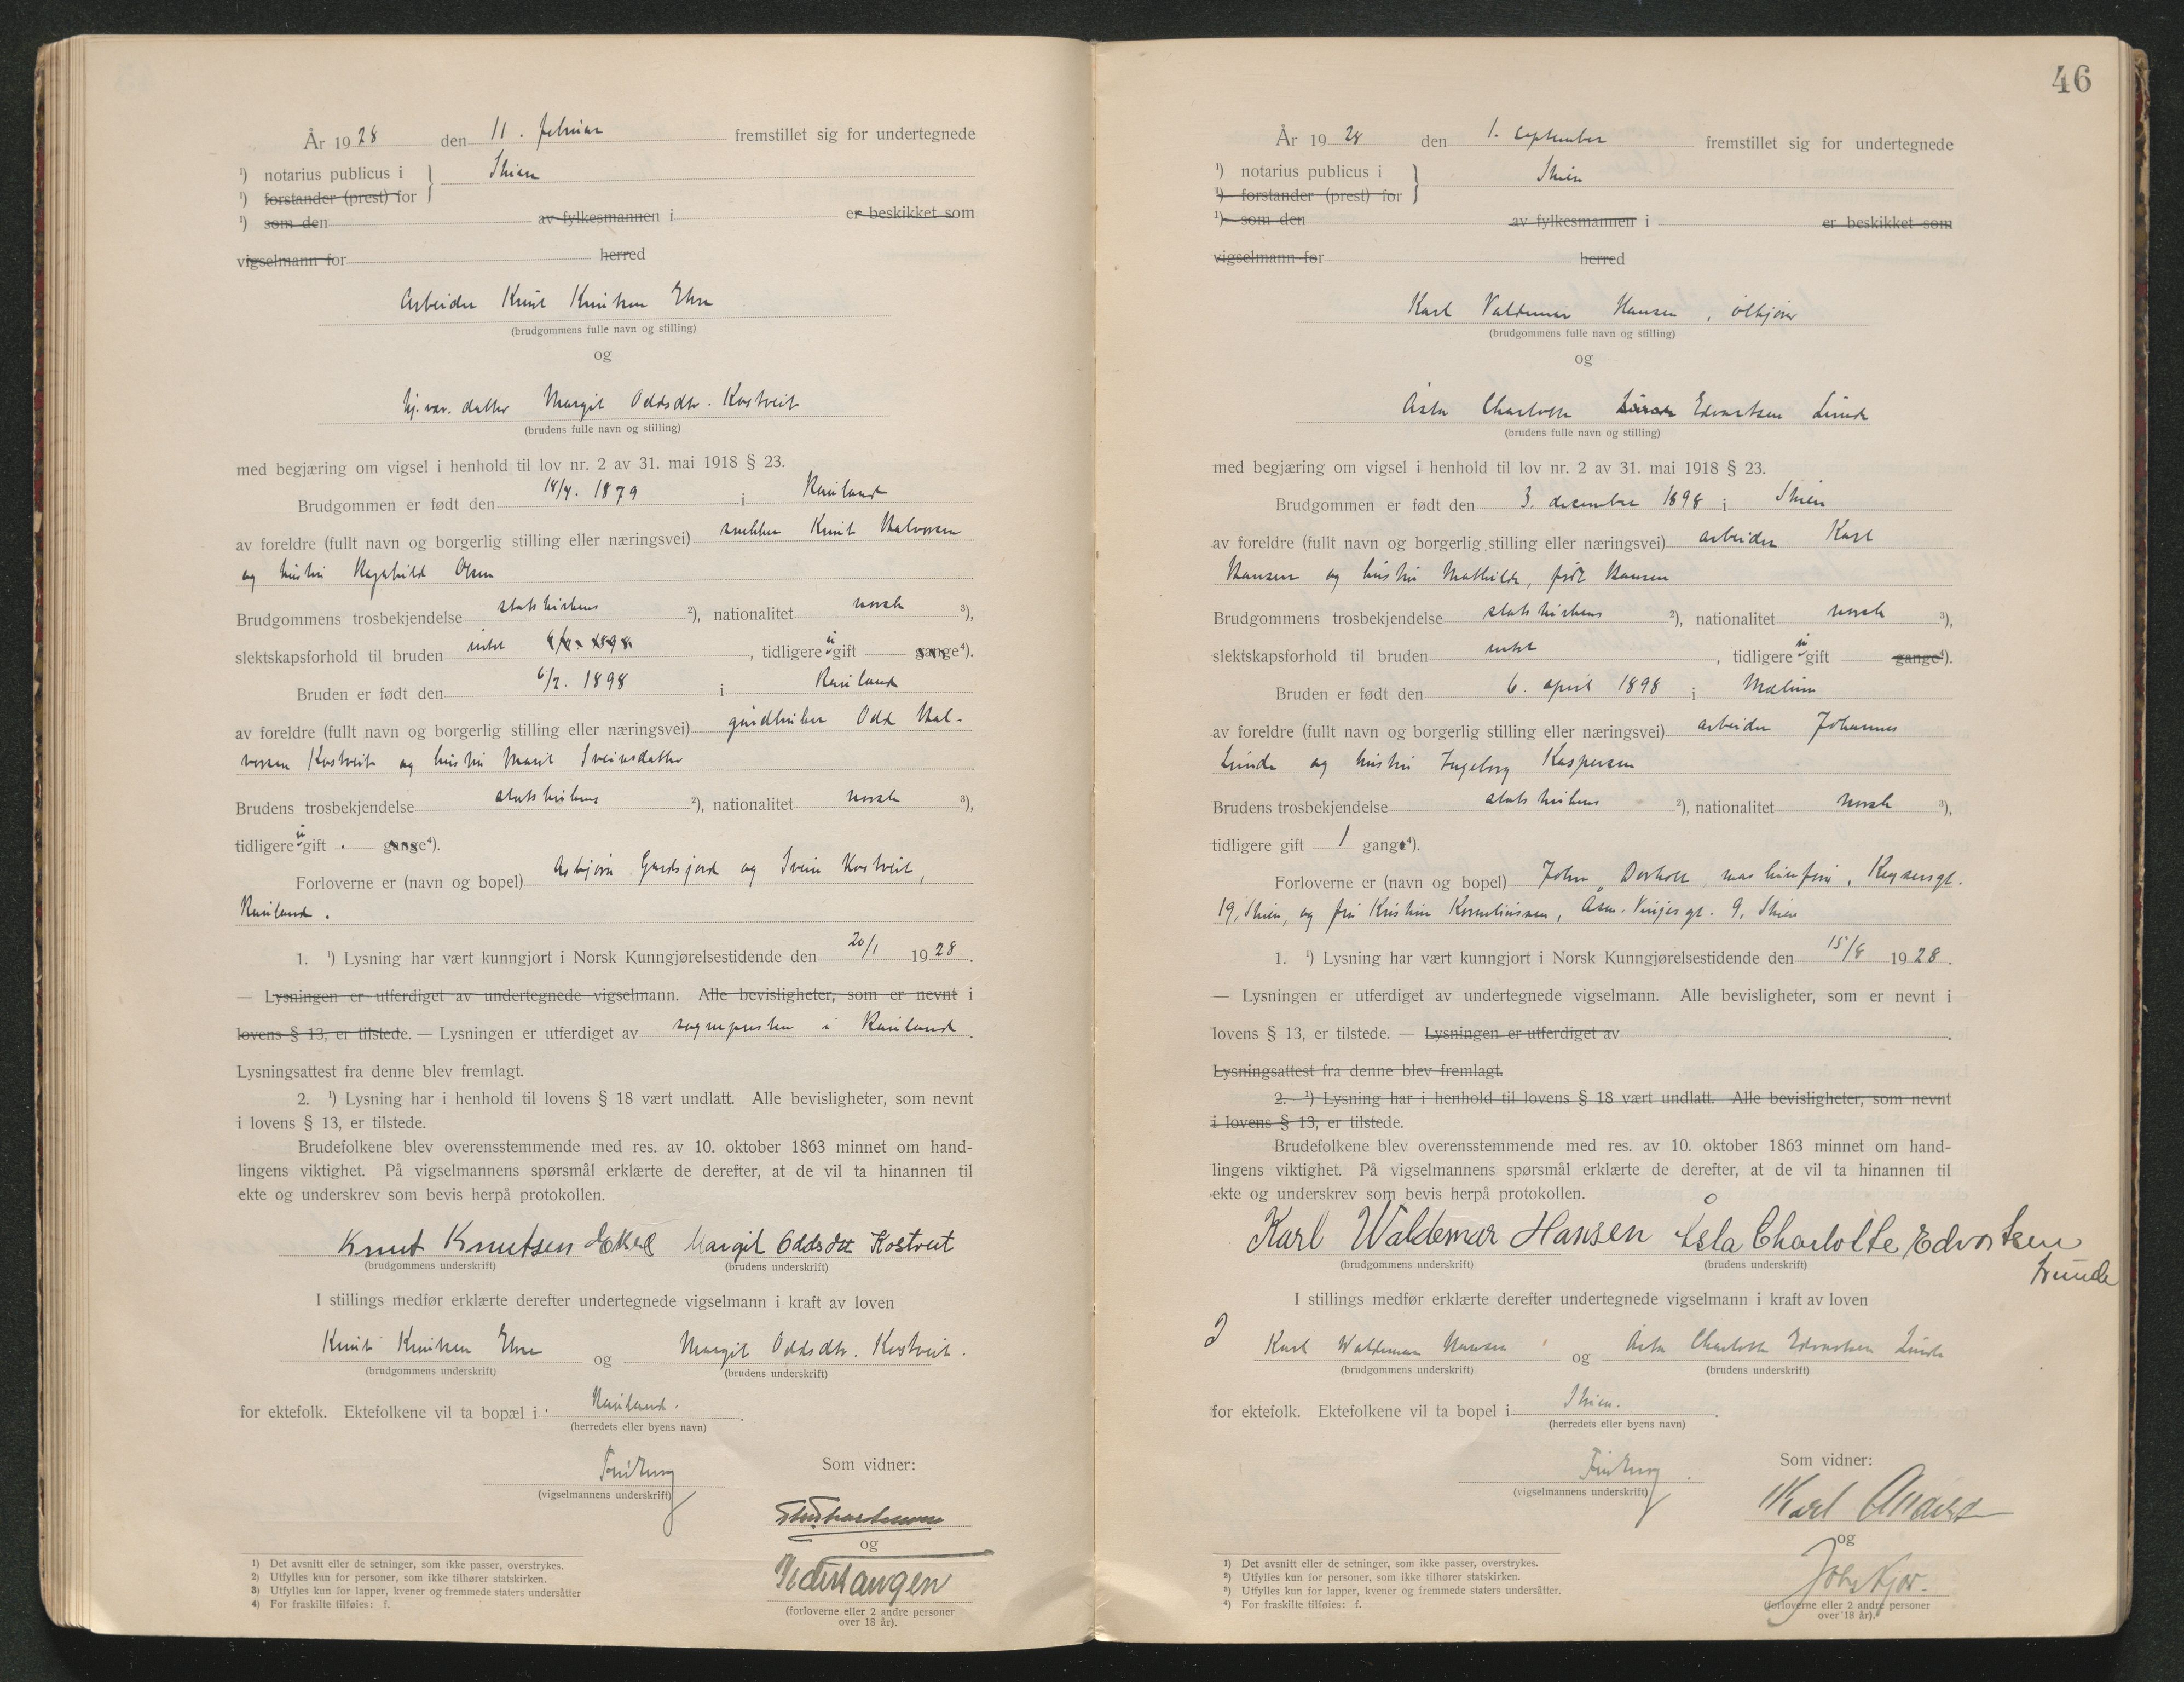 År 1928 den 11. februar fremstillet sig for undertegnede
¹) notarius publicus i Skien
¹) forstander (prest) for
¹) som den av fylkesmannen i er beskikket som
vigselmann for herred
Arbeider Knut Knutsen
(brudgommens fulle navn og stilling)
og
hj.vær. datter Margit Oddsdtr. Kostveit
(brudens fulle navn og stilling)
med begjæring om vigsel i henhold til lov nr. 2 av 31. mai 1918 § 23.
Brudgommen er født den 1879 i Rauland
av foreldre (fullt navn og borgerlig stilling eller næringsvei) snekker Knut Halvorsen
og hustru Ragnhild Olsen
Brudgommens trosbekjendelse statskirkens ²), nationalitet norsk ³),
slektskapsforhold til bruden intet , tidligere ei gift gange⁴).
Bruden er født den 6/2. 1898 i Rauland
av foreldre (fullt navn og borgerlig stilling eller næringsvei) gårdbruker Odd Hal-
vorsen Kostveit og hustru Marit Sveinsdatter
Brudens trosbekjendelse statskirkens ²), nationalitet norsk ³),
tidligere ei gift gange⁴).
Forloverne er (navn og bopel) Asbjørn Gardsjord og Svein Kostveit,
Rauland.
1. ¹) Lysning har vært kunngjort i Norsk Kunngjørelsestidende den 20/1 1928.
— Lysningen er utferdiget av undertegnede vigselmann. Alle bevisligheter, som er nevnt i
lovens § 13, er tilstede. — Lysningen er utferdiget av sognepresten i Rauland.
Lysningsattest fra denne blev fremlagt.
2. ¹) Lysning har i henhold til lovens § 18 vært undlatt. Alle bevisligheter, som nevnt
i lovens § 13, er tilstede.
Brudefolkene blev overensstemmende med res. av 10. oktober 1863 minnet om hand-
lingens viktighet. På vigselmannens spørsmål erklærte de derefter, at de vil ta hinannen til
ekte og underskrev som bevis herpå protokollen.
Knut Knutsen Margit Oddsdtr Kostveit
(brudgommens underskrift) (brudens underskrift)
I stillings medfør erklærte derefter undertegnede vigselmann i kraft av loven
Knut Knutsen og Margit Oddsdtr. Kostveit.
(brudgommens underskrift) (brudens underskrift)
for ektefolk. Ektefolkene vil ta bopæl i Rauland.
(herredets eller byens navn)
(vigselmannens underskrift)
Som vidner:
og
(forloverne eller 2 andre personer
over 18 år).
1) Det avsnitt eller de setninger, som ikke passer, overstrykes.
2) Utfylles kun for personer, som ikke tilhører statskirken.
3) Utfylles kun for lapper, kvener og fremmede staters undersåtter
4) For fraskilte tilføies: f.
46
År 1928 den 1. september fremstillet sig for undertegnede
¹) notarius publicus i Skien
¹) forstander (prest) for
¹) som den av fylkesmannen i er beskikket som
vigselmann for herred
Karl Valdemar Hansen, ølkjører
(brudgommens fulle navn og stilling)
og
Åsta Charlotte Edvartsen Lunde
(brudens fulle navn og stilling)
med begjæring om vigsel i henhold til lov nr. 2 av 31. mai 1918 § 23.
Brudgommen er født den 3. december 1898 i Skien
av foreldre (fullt navn og borgerlig stilling eller næringsvei) arbeider Karl
Hansen og hustru Mathilde, født Hansen
Brudgommens trosbekjendelse statskirkens ²), nationalitet norsk ³),
slektskapsforhold til bruden intet , tidligere ei gift gange⁴).
Bruden er født den 6. april 1898 i Mælum
av foreldre (fullt navn og borgerlig stilling eller næringsvei) arbeider Johannes
Lunde og hustru Ingeborg Kaspersen
Brudens trosbekjendelse statskirkens ²), nationalitet norsk ³),
tidligere gift 1 gang⁴).
Forloverne er (navn og bopel) John Dorholt, Keysersgt.
19, Skien, og fru Kristine Korneliussen, Aasm. Vinjes gt. 9, Skien
1. ¹) Lysning har vært kunngjort i Norsk Kunngjørelsestidende den 15/8 1928.
— Lysningen er utferdiget av undertegnede vigselmann. Alle bevisligheter, som er nevnt i
lovens § 13, er tilstede. — Lysningen er utferdiget av
Lysningsattest fra denne blev fremlagt.
2. ¹) Lysning har i henhold til lovens § 18 vært undlatt. Alle bevisligheter, som nevnt
i lovens § 13, er tilstede.
Brudefolkene blev overensstemmende med res. av 10. oktober 1863 minnet om hand-
lingens viktighet. På vigselmannens spørsmål erklærte de derefter, at de vil ta hinannen til
ekte og underskrev som bevis herpå protokollen.
Karl Waldemar Hansen Åsta Charlotte Edvartsen
Lunde
(brudgommens underskrift) (brudens underskrift)
I stillings medfør erklærte derefter undertegnede vigselmann i kraft av loven
Karl Waldemar Hansen og Åsta Charlotte Edvartsen Lunde
(brudgommens underskrift) (brudens underskrift)
for ektefolk. Ektefolkene vil ta bopel i Skien.
(herredets eller byens navn)
(vigselmannens underskrift)
Som vidner:
Karl
og
(forloverne eller 2 andre personer
over 18 år).
1) Det avsnitt eller de setninger, som ikke passer, overstrykes.
2) Utfylles kun for personer, som ikke tilhører statskirken.
3) Utfylles kun for lapper, kvener og fremmede staters undersåtter.
4) For fraskilte tilføies: f.